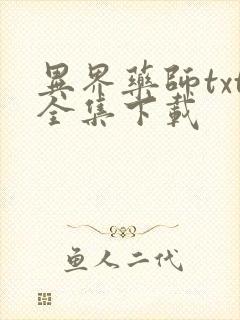 異界藥師txt
全集下載
鱼人二代